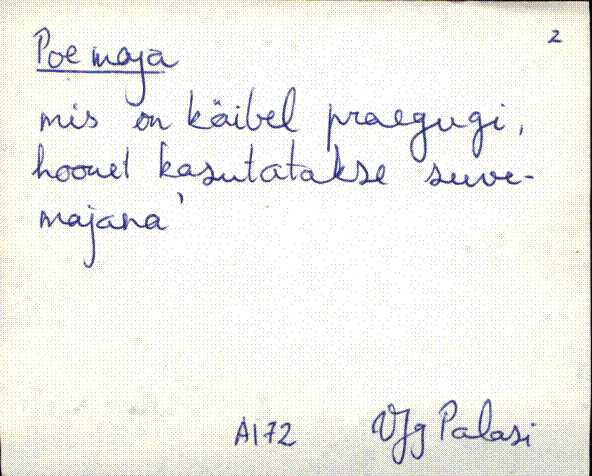 2
Poe maja
mis on käibel praegugi,
hoonet kasutatakse suve-
majana'
A172 VJg Palasi